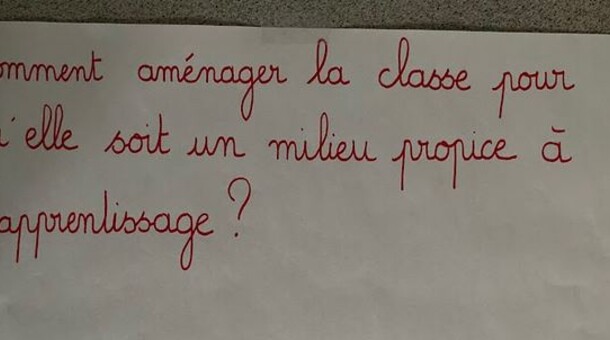 omment aménager la classe pour
'elle soit un milieu propice à
apprentissage ?